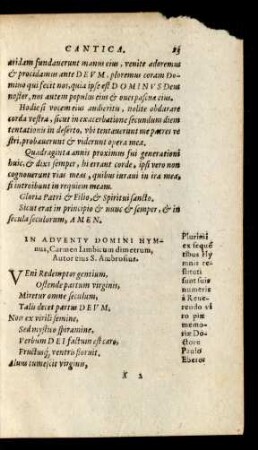 CANTICA.
aridam fundauerunt manus eius, venite adoremus
& procidamus ante DEVM, ploremus coram Do-
mino qui fecit nos, quia ipse est DOMINVS Deus
noster, nos autem populus eius & oues pascuæ eius.
Hodie si vocem eius audieritis, nolite obdurare
corda vestra, sicut in exacerbatione secundum diem
tentationis in deserto, vbi tentauerunt me patres ve
stri, probauerunt & viderunt opera mea.
Quadraginta annis proximus fui generationi
huic, & dixi semper, hi errant corde, ipsi vero non
cognouerunt vias meas, quibus iuraui in ira mea,
si introibunt in requiem meam.
Gloria Patri & Filio, & Spiritui sancto,
Sicut erat in principio & nunc & semper, & in
secula seculorum, AMEN.
IN ADVENTV DOMINI HYM-
nus, Carmen Iambicum dimetrum,
Autor eius S. Ambrosius.
VEni Redemptor gentium,
Ostende partum virginis,
Miretur omne seculum,
Talis decet partus DEVM.
Non ex virili semine,
Sed mystico spiramine,
Verbum DEI factum est caro,
Fructusq, ventris floruit.
Aluus tumescit virginis,
Plurimi
ex sequē
tibus Hy
mnis re-
stituti
sunt suis
numeris
à Reue-
rendo vi
ro piæ
memo-
riæ Do-
ctore
Paulo
Ebero.
K 2